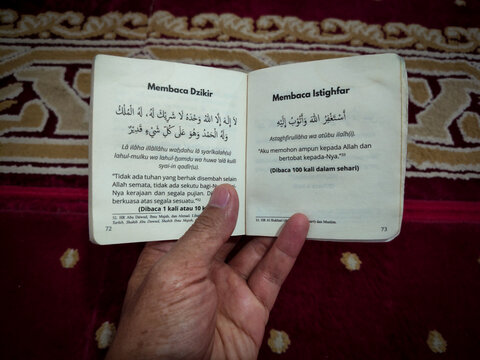 Membaca Dzikir
لَا إِلَهَ إِلَّا اللهُ وَحْدَهُ لَا شَرِيْكَ لَهُ، لَهُ الْمُلْكُ
وَلَهُ الْحَمْدُ وَهُوَ عَلَى كُلِّ شَيْءٍ قَدِيْرٌ
Lā ilāha illāllāhu waḥdahu lā syarīkalahu,
lahul-mulku wa lahul-ḥamdu wa huwa 'alā kulli
syai-in qadīr(u).
"Tidak ada tuhan yang berhak disembah selain
Allah semata, tidak ada sekutu bagi-
Nya kerajaan dan segala pujian. D
berkuasa atas segala sesuatu."
(Dibaca 1 kali atau 10 k
52. HR Abu Dawud, Ibnu Majah, dan Ahmad.
72
Membaca Istighfar
أَسْتَغْفِرُ اللهَ وَأَتُوْبُ إِلَيْهِ
Astaghfirullāha wa atūbu ilaih(i).
"Aku memohon ampun kepada Allah dan
bertobat kepada-Nya."
(Dibaca 100 kali dalam sehari)
53. HR Al-Bukhari dan Muslim.
73